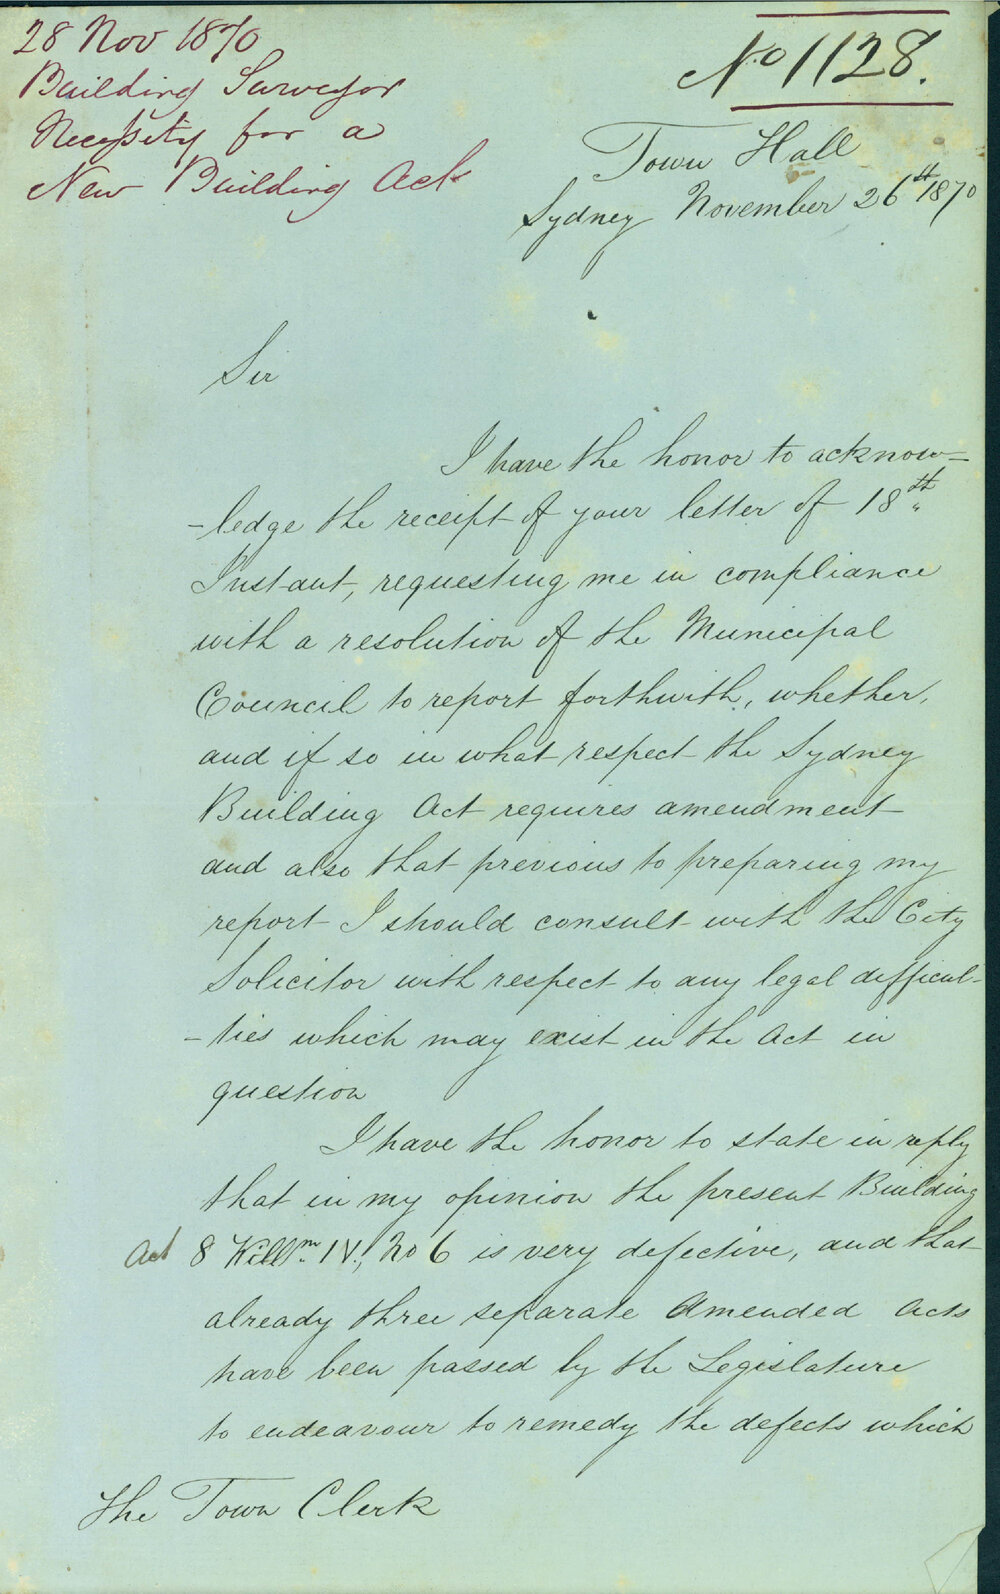 28 Nov 1870
Building Surveyor
Necessity for a
New Building Act
No 1128.
Town Hall
Sydney November 26th 1870
Sir
I have the honor to acknow=
-ledge the receipt of your letter of 18th
Instant, requesting me in compliance
with a resolution of the Municipal
Council to report forthwith, whether,
and if so in what respect the Sydney
Building Act requires amendment
and also that previous to preparing my
report I should consult with the City
Solicitor with respect to any legal difficul-
-ties which may exist in the Act in
question
I have the honor to state in reply
that in my opinion the present Building
Act 8 Willm. IV., No 6 is very defective, and that
already three separate Amended Acts
have been passed by the Legislature
to endeavour to remedy the defects which
The Town Clerk